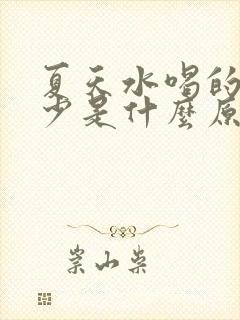 夏天水喝的
少是什麼原
崇山柴